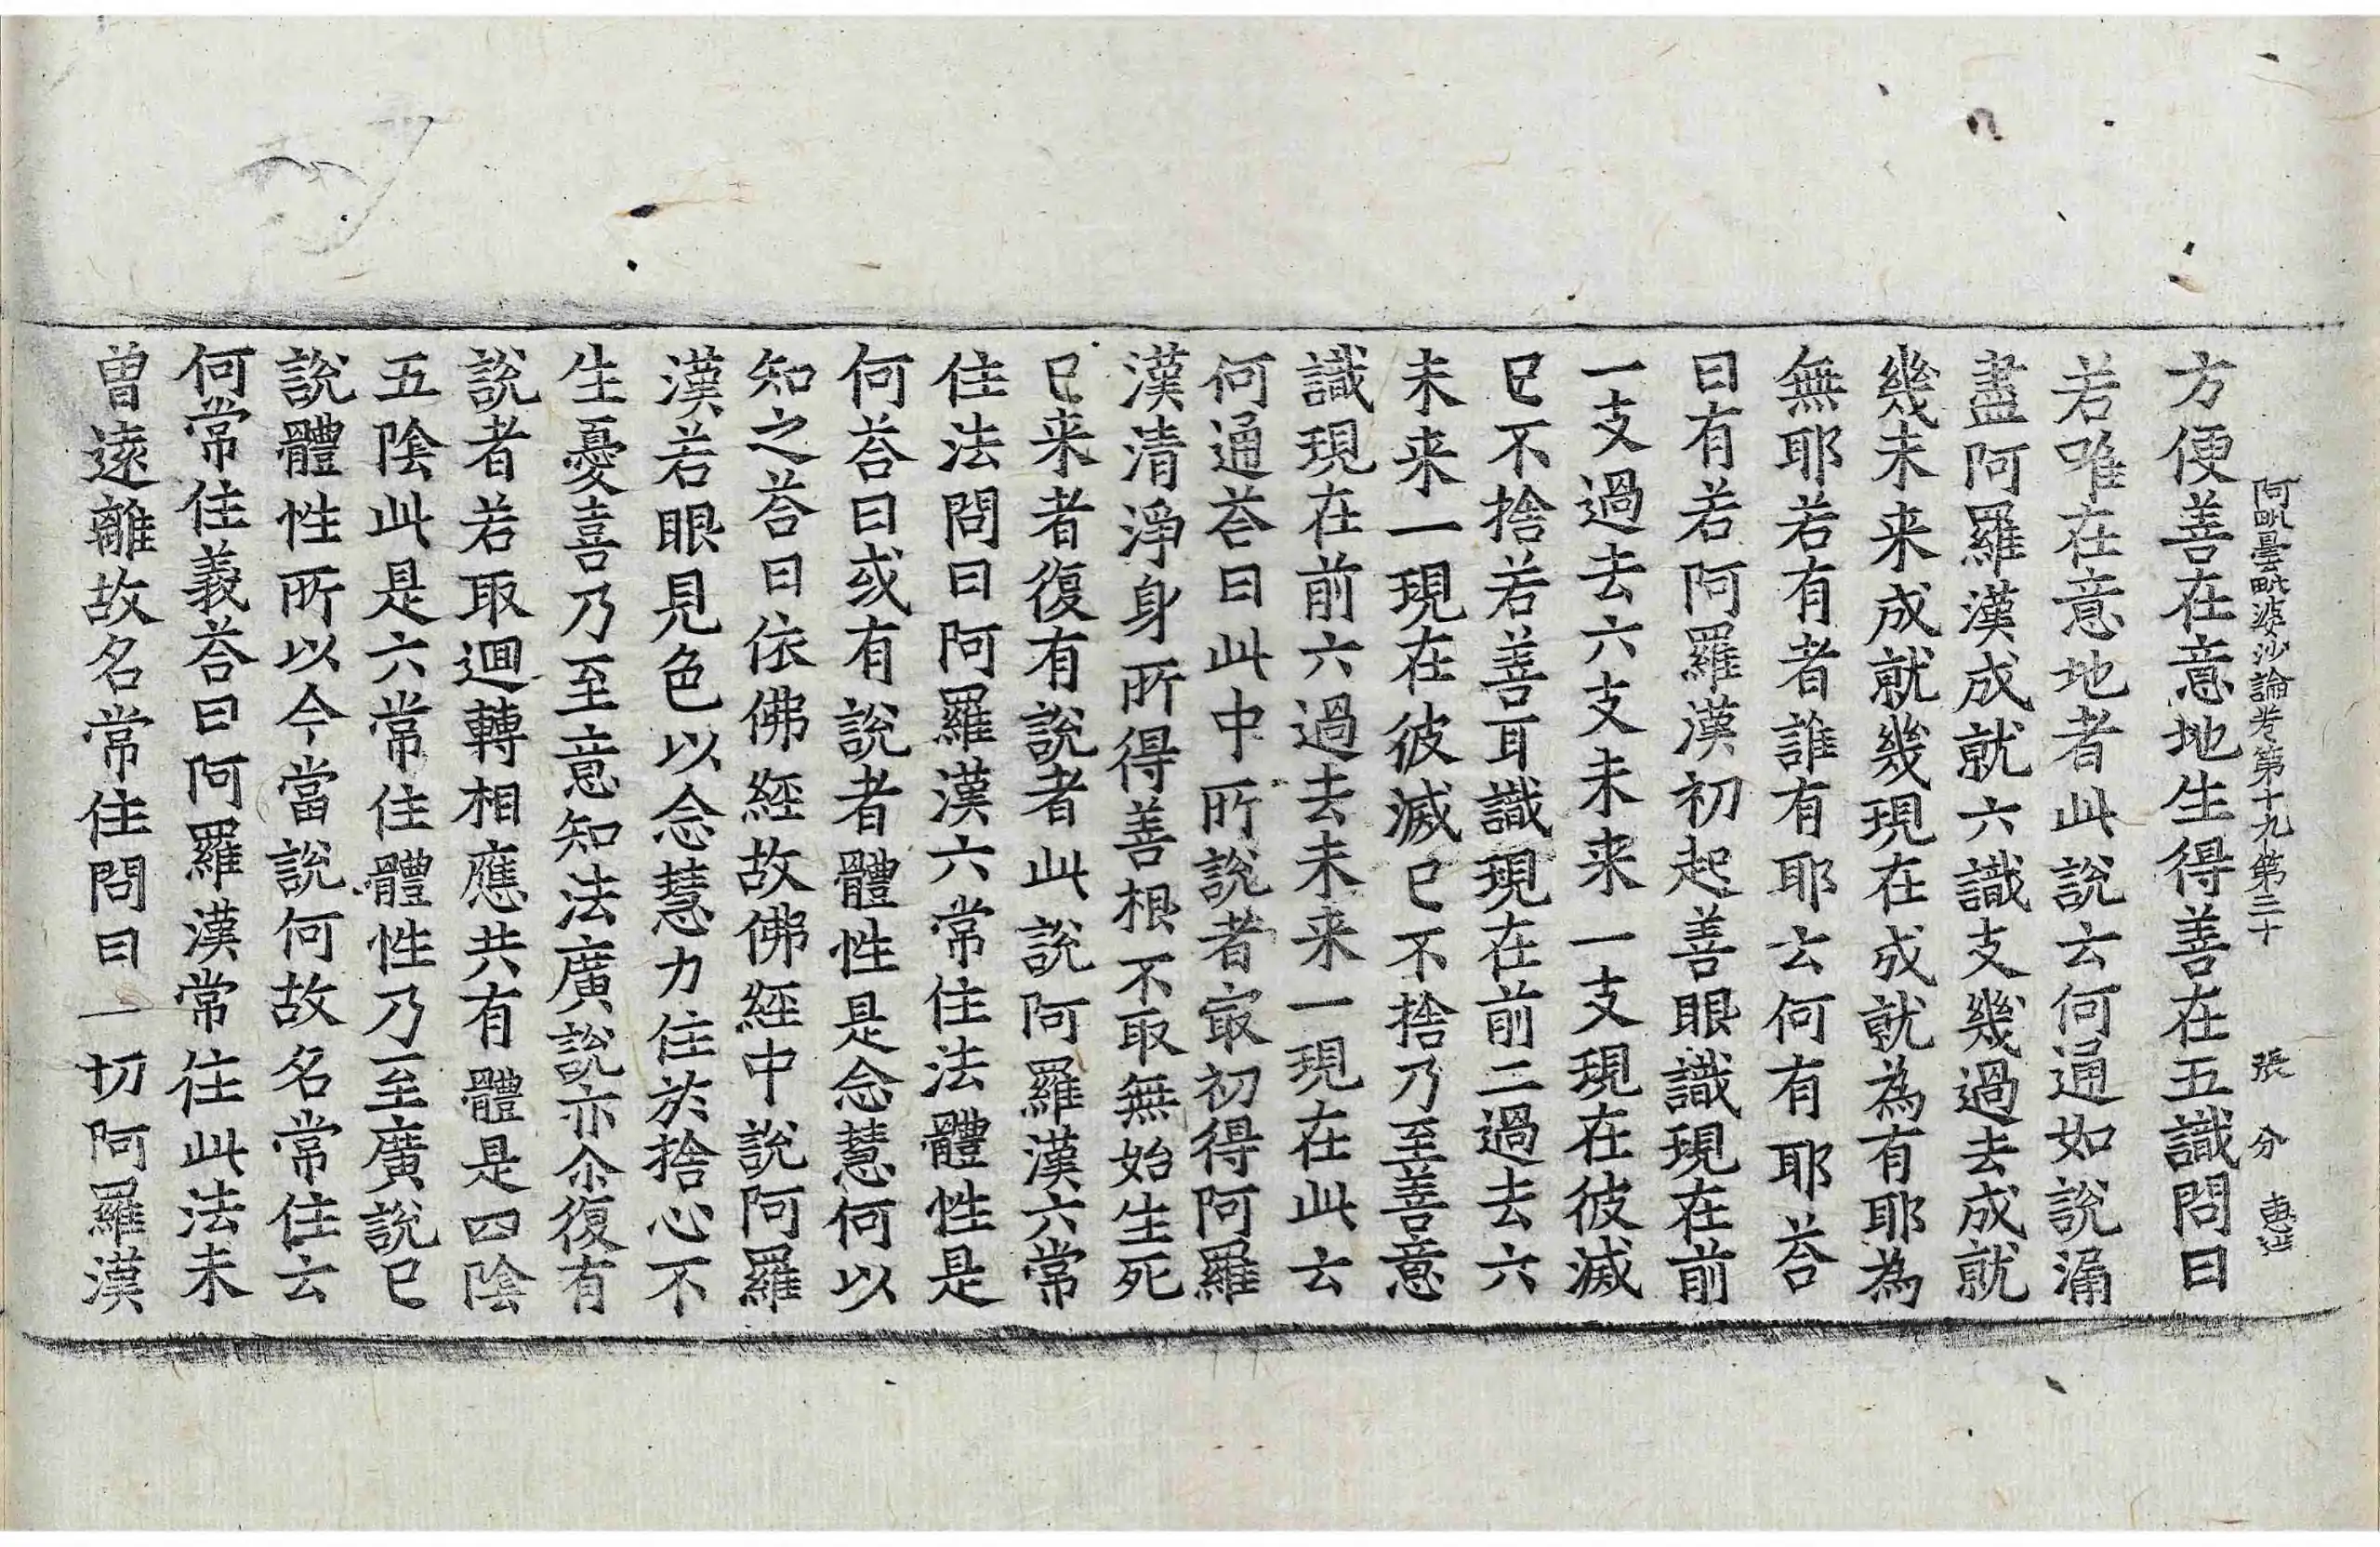 阿毗曇毗婆沙論卷第十九 第三十 張 分
方便善在意地生得善在五識問曰
若唯在意地者此說云何通如說漏
盡阿羅漢成就六識支幾過去成就
幾未来成就幾現在成就為有耶為
無耶若有者誰有耶云何有耶荅
曰有若阿羅漢初起善眼識現在前
一支過去六支未来一支現在彼滅
已不捨若善耳識現在前二過去六
未来一現在彼滅已不捨乃至善意
識現在前六過去未来一現在此云
何通荅曰此中所說者㝡初得阿羅
漢清淨身所得善根不取無始生死
已来者復有說者此說阿羅漢六常
住法問曰阿羅漢六常住法體性是
何荅曰或有說者體性是念慧何以
知之荅曰依佛經故佛經中說阿羅
漢若眼見色以念慧力住於捨心不
生憂喜乃至意知法廣說亦尒復有
說者若取迴轉相應共有體是四陰
五陰此是六常住體性乃至廣說已
說體性所以今當說何故名常住云
何常住義荅曰阿羅漢常住此法未
曾遠離故名常住問曰一切阿羅漢